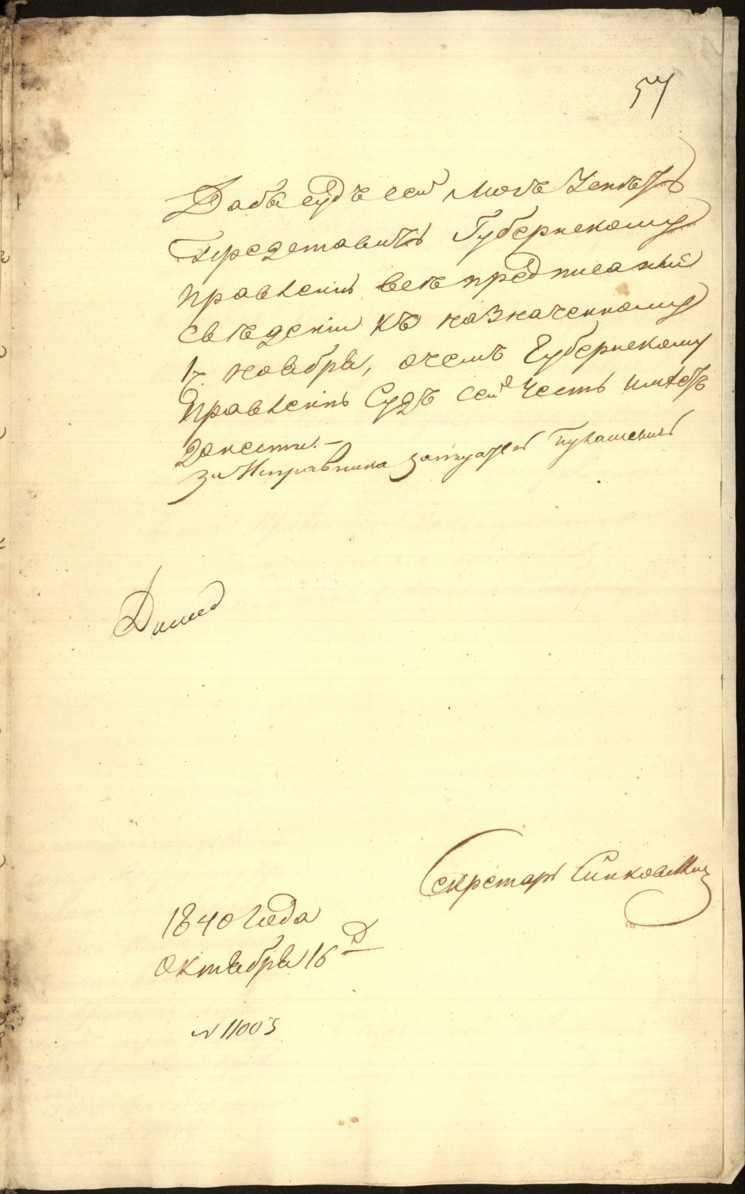 57
Дабы судъ сей могъ успѣть
Представить Губернскому
правленію всѣ предписаныя
свѣденіи къ назначенному
1 ноября, о чемъ Губернскому
Правленію Судъ сей честь имѣетъ
донести.—
За Исправника
Секретарь
1840 года
октября 16 д
№ 11003